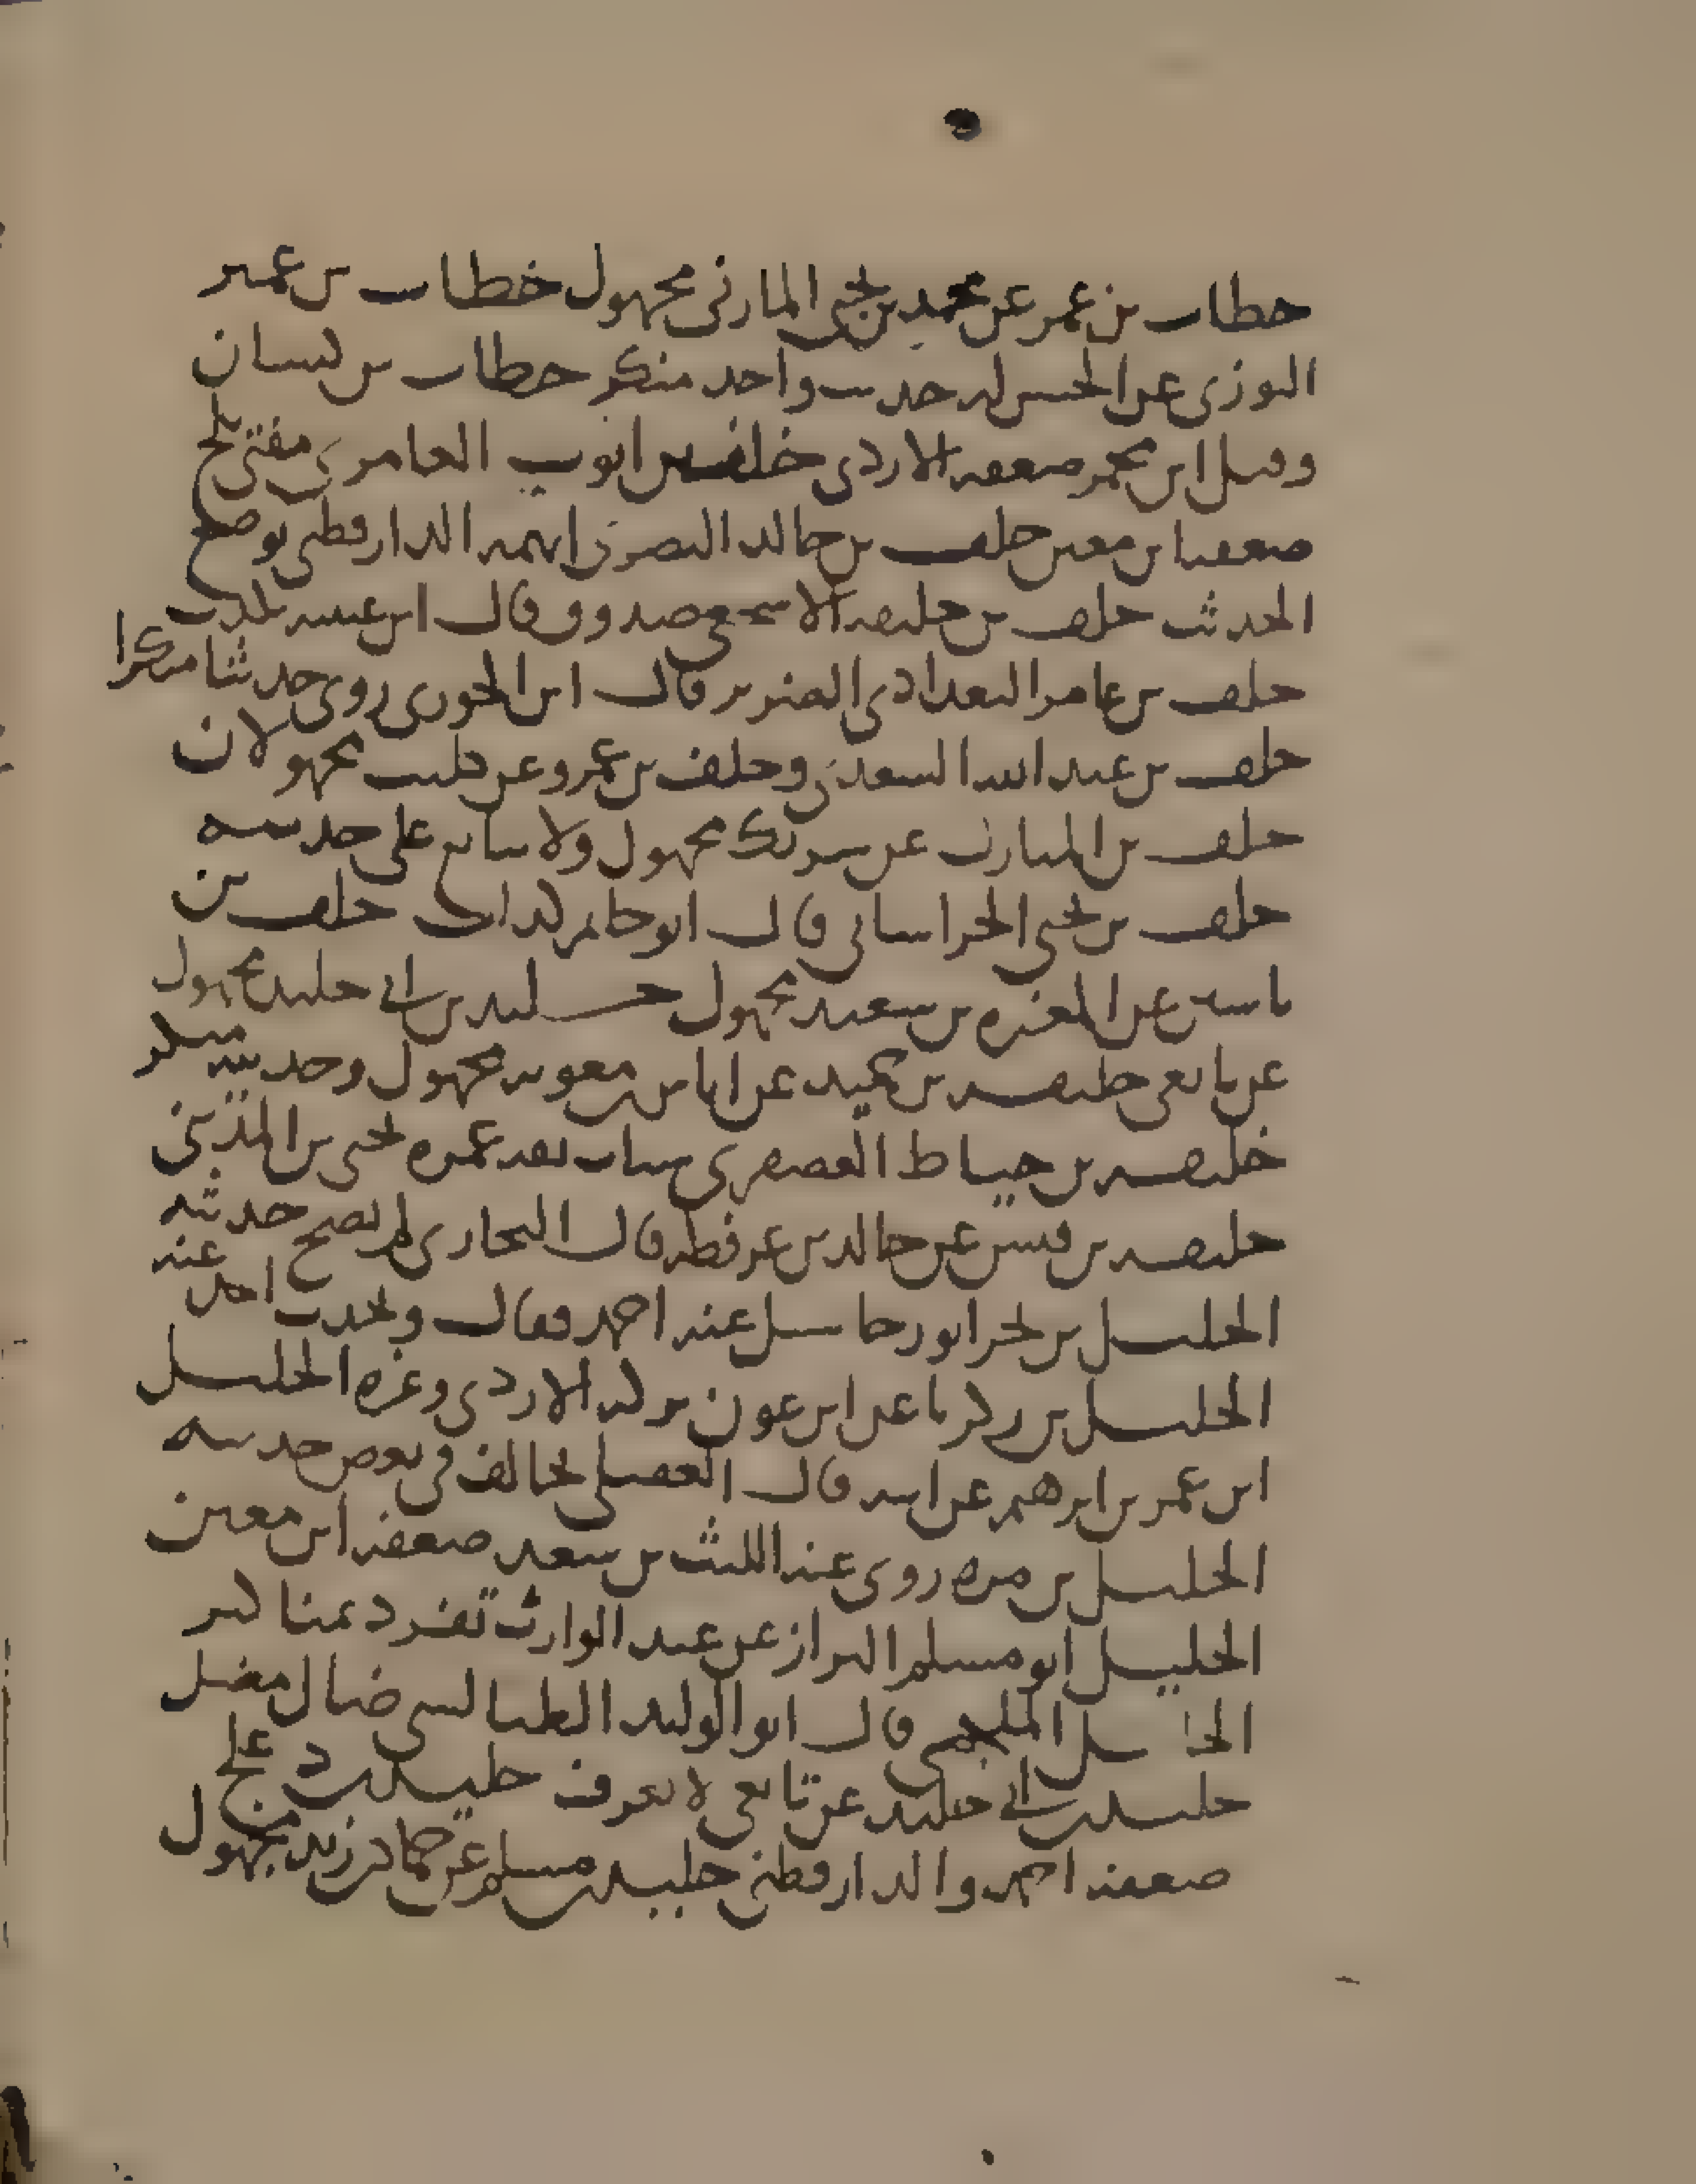 خطاب بن عمر عن محمد بن يحيى المازني مجهول خطاب بن عمير
الثوري عن الحسن له حديث واحد منكر خطاب بن كيسان
وقيل ابن محمر ضعفه الازدي خلف بن ايوب العامري مفتي بلخ
ضعفه ابن معين خلف بن خالد البصري اتهمه الدارقطني بوضع
الحديث خلف بن خليفة الاشجعي صدوق وقال ابن عيينه يكذب
خلف بن عامر البغدادي الضرير قال ابن الجوزي روى حديثا منكرا
خلف بن عبد الله السعدي وخلف بن عمرو عن كليب مجهولان
خلف بن المبارك عن شريك مجهول ولا يتابع على حديثه
خلف بن يحيى الخراساني قال ابو حاتم كذاب خلف بن
ياسين عن المغيره بن سعيد مجهول خليد بن ابي خليد مجهول
عن تابعي خليفه بن حميد عن اياس بن معويه مجهول وحديثه منكر
خليفه بن خياط العصفري شباب ثقه غمزه يحيى بن المديني
خليفه بن قيس عن خالد بن عرفطه قال البخاري لم يصح حديثه
الخليل بن بحر ابو رجا سيل عنه احمد فقال ويحدث احد عنه
الخليل بن زكريا عن ابن عون تركه الازدي وغيره الخليل
ابن عمر بن ابرهيم عن ابيه قال العقيلي يخالف في بعض حديثه
الخليل بن مره روى عنه الليث بن سعد ضعفه ابن معين
الخليل ابو مسلم البزاز عن عبد الوارث تفرد بمناكير
الخليل الملجمي قال ابو الوليد الطيالسي ضال مضل
خليل بن ابي خليد عن تابعي لا يعرف خليد بن دعلج
ضعفه احمد والدارقطني خليد بن مسلم عن حماد بن زيد مجهول